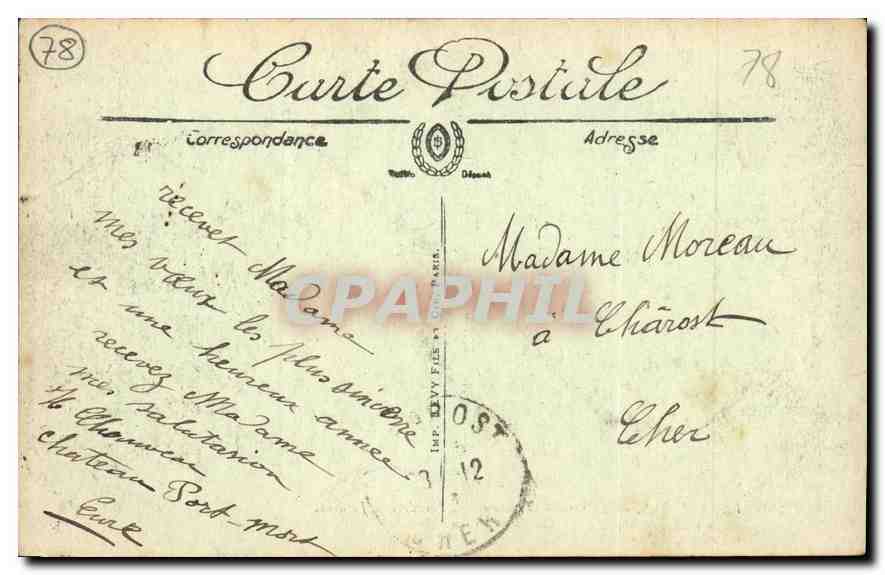 78
78
Carte Postale
Correspondance
Adresse
recevet Madame
mes vœux les plus sincere
et une heureux année
recevez Madame
mes salutasion
Chauveu
chateau Port-mort
Eure
IMP. LEVY FILS ET CIE, PARIS.
Madame Moreau
à Chârost
Cher
OST
12
CHER
CPAPHIL